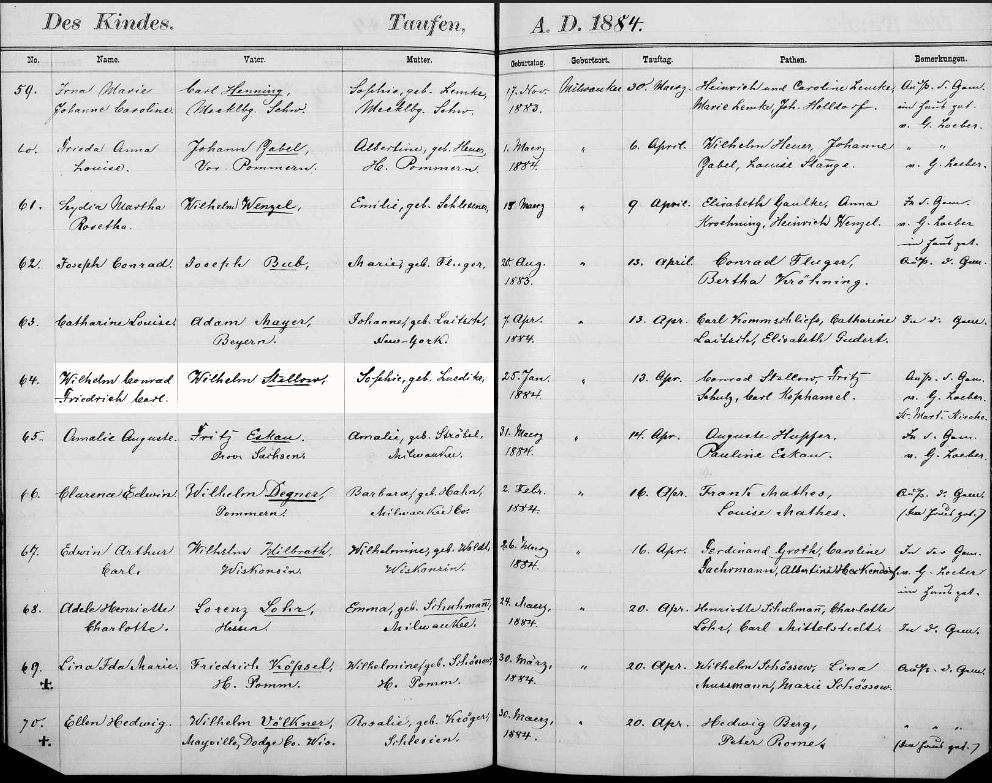 Des Kindes. Taufen, A. D. 1884.
No. Name. Vater. Mutter. Geburtstag. Geburtsort. Tauftag. Pathen. Bemerkungen.
59. Irna Marie Carl Henning, Sophie, geb. Lemke, 17. Nov. Milwaukee 30. Maerz. Heinrich und Caroline Lemke, Auss. d. Gem.
Johanne Caroline. Mecklbg. Schw. Mecklbg. Schw. 1883. Marie Lemke, Joh. Holldorf. im Haus get.
v. G. Loeber.
Frieda Anna Johann Zabel, Albertine, geb. Heuer, 1. Maerz " 6. April. Wilhelm Heuer, Johanne " "
Louise. Vor. Pommern. H. Pommern. 1884. Zabel, Louise Stange. v. G. Loeber.
61. Lydia Martha Wilhelm Wenzel, Emilie, geb. 18 Maerz " 9 April. Elisabeth Gaulke, Anna In d. Gem.
Rosetha. Kroehning, Heinrich Wenzel. v. G. Loeber
im Haus get.
62. Joseph Conrad. Joseph Bub, Marie, geb. Fluger, Aug. " 13. April. Conrad Fluger, Auss. d. Gem.
1883. Bertha Kröhning.
63. Catharine Louise. Adam Mayer, Johanne, geb. Laitsch, 7. Apr. " 13. Apr. Carl Kommschliess, Catharine In d. Gem.
Beyern. New-York. 1884. Laitsch, Elisabeth Gudert.
64. Wilhelm Conrad Wilhelm Stellow, Sophie, geb. Luedike, 25. Jan. " 13. Apr. Conrad Stellow, Fritz Auss. d. Gem.
Friedrich Carl. 1884. Schulz, Carl Köphamel. v. G. Loeber.
St. Mart. Kirche.
65. Amalie Auguste. Fritz Eskau. Amalie, geb. Ströbel, 31. Maerz " 14. Apr. Auguste Hupfer. In d. Gem.
Prov. Sachsen. Milwaukee. 1884. Pauline Eskau. v. G. Loeber.
66. Clarence Edwin. Wilhelm Degner, Barbara, geb. Hahn, 2. Febr. " 16. Apr. Frank Mathes, Auss. d. Gem.
Pommern. Milwaukee Co. 1884. Louise Mathes. (im Haus get.)
67. Edwin Arthur Wilhelm Hilbrath, Wilhelmine, geb. Woldt, 26. Maerz " 16. Apr. Ferdinand Groth, Caroline In der Gem.
Carl. Wiskonsin. Wiskonsin. 1884. Fachrmann, Albertine Heckendorf. v. G. Loeber
im Haus get.
68. Adele Henriette Lorenz Lohr, Emma, geb. Schuhmann, 24. Maerz, " 20. Apr. Henriette Schuhmann, Charlotte
Charlotte. Hessen. Milwaukee. 1884. Lohr, Carl Mittelstedt. In d. Gem.
69. Lina Ida Marie. Friedrich Köpsel, Wilhelmine, geb. Schössow, 30. März, " 20. Apr. Wilhelm Schössow, Lina Auss. d. Gem.
H. Pomm. H. Pomm. 1884. Mussmann, Marie Schössow.
70. Ellen Hedwig. Wilhelm Völkner, Rosalie, geb. Kröger, 30. Maerz, " 20. Apr. Hedwig Berg, " "
Mayville, Dodge Co. Wis. Schlesien. 1884. Peter Rome. (im Haus get.)